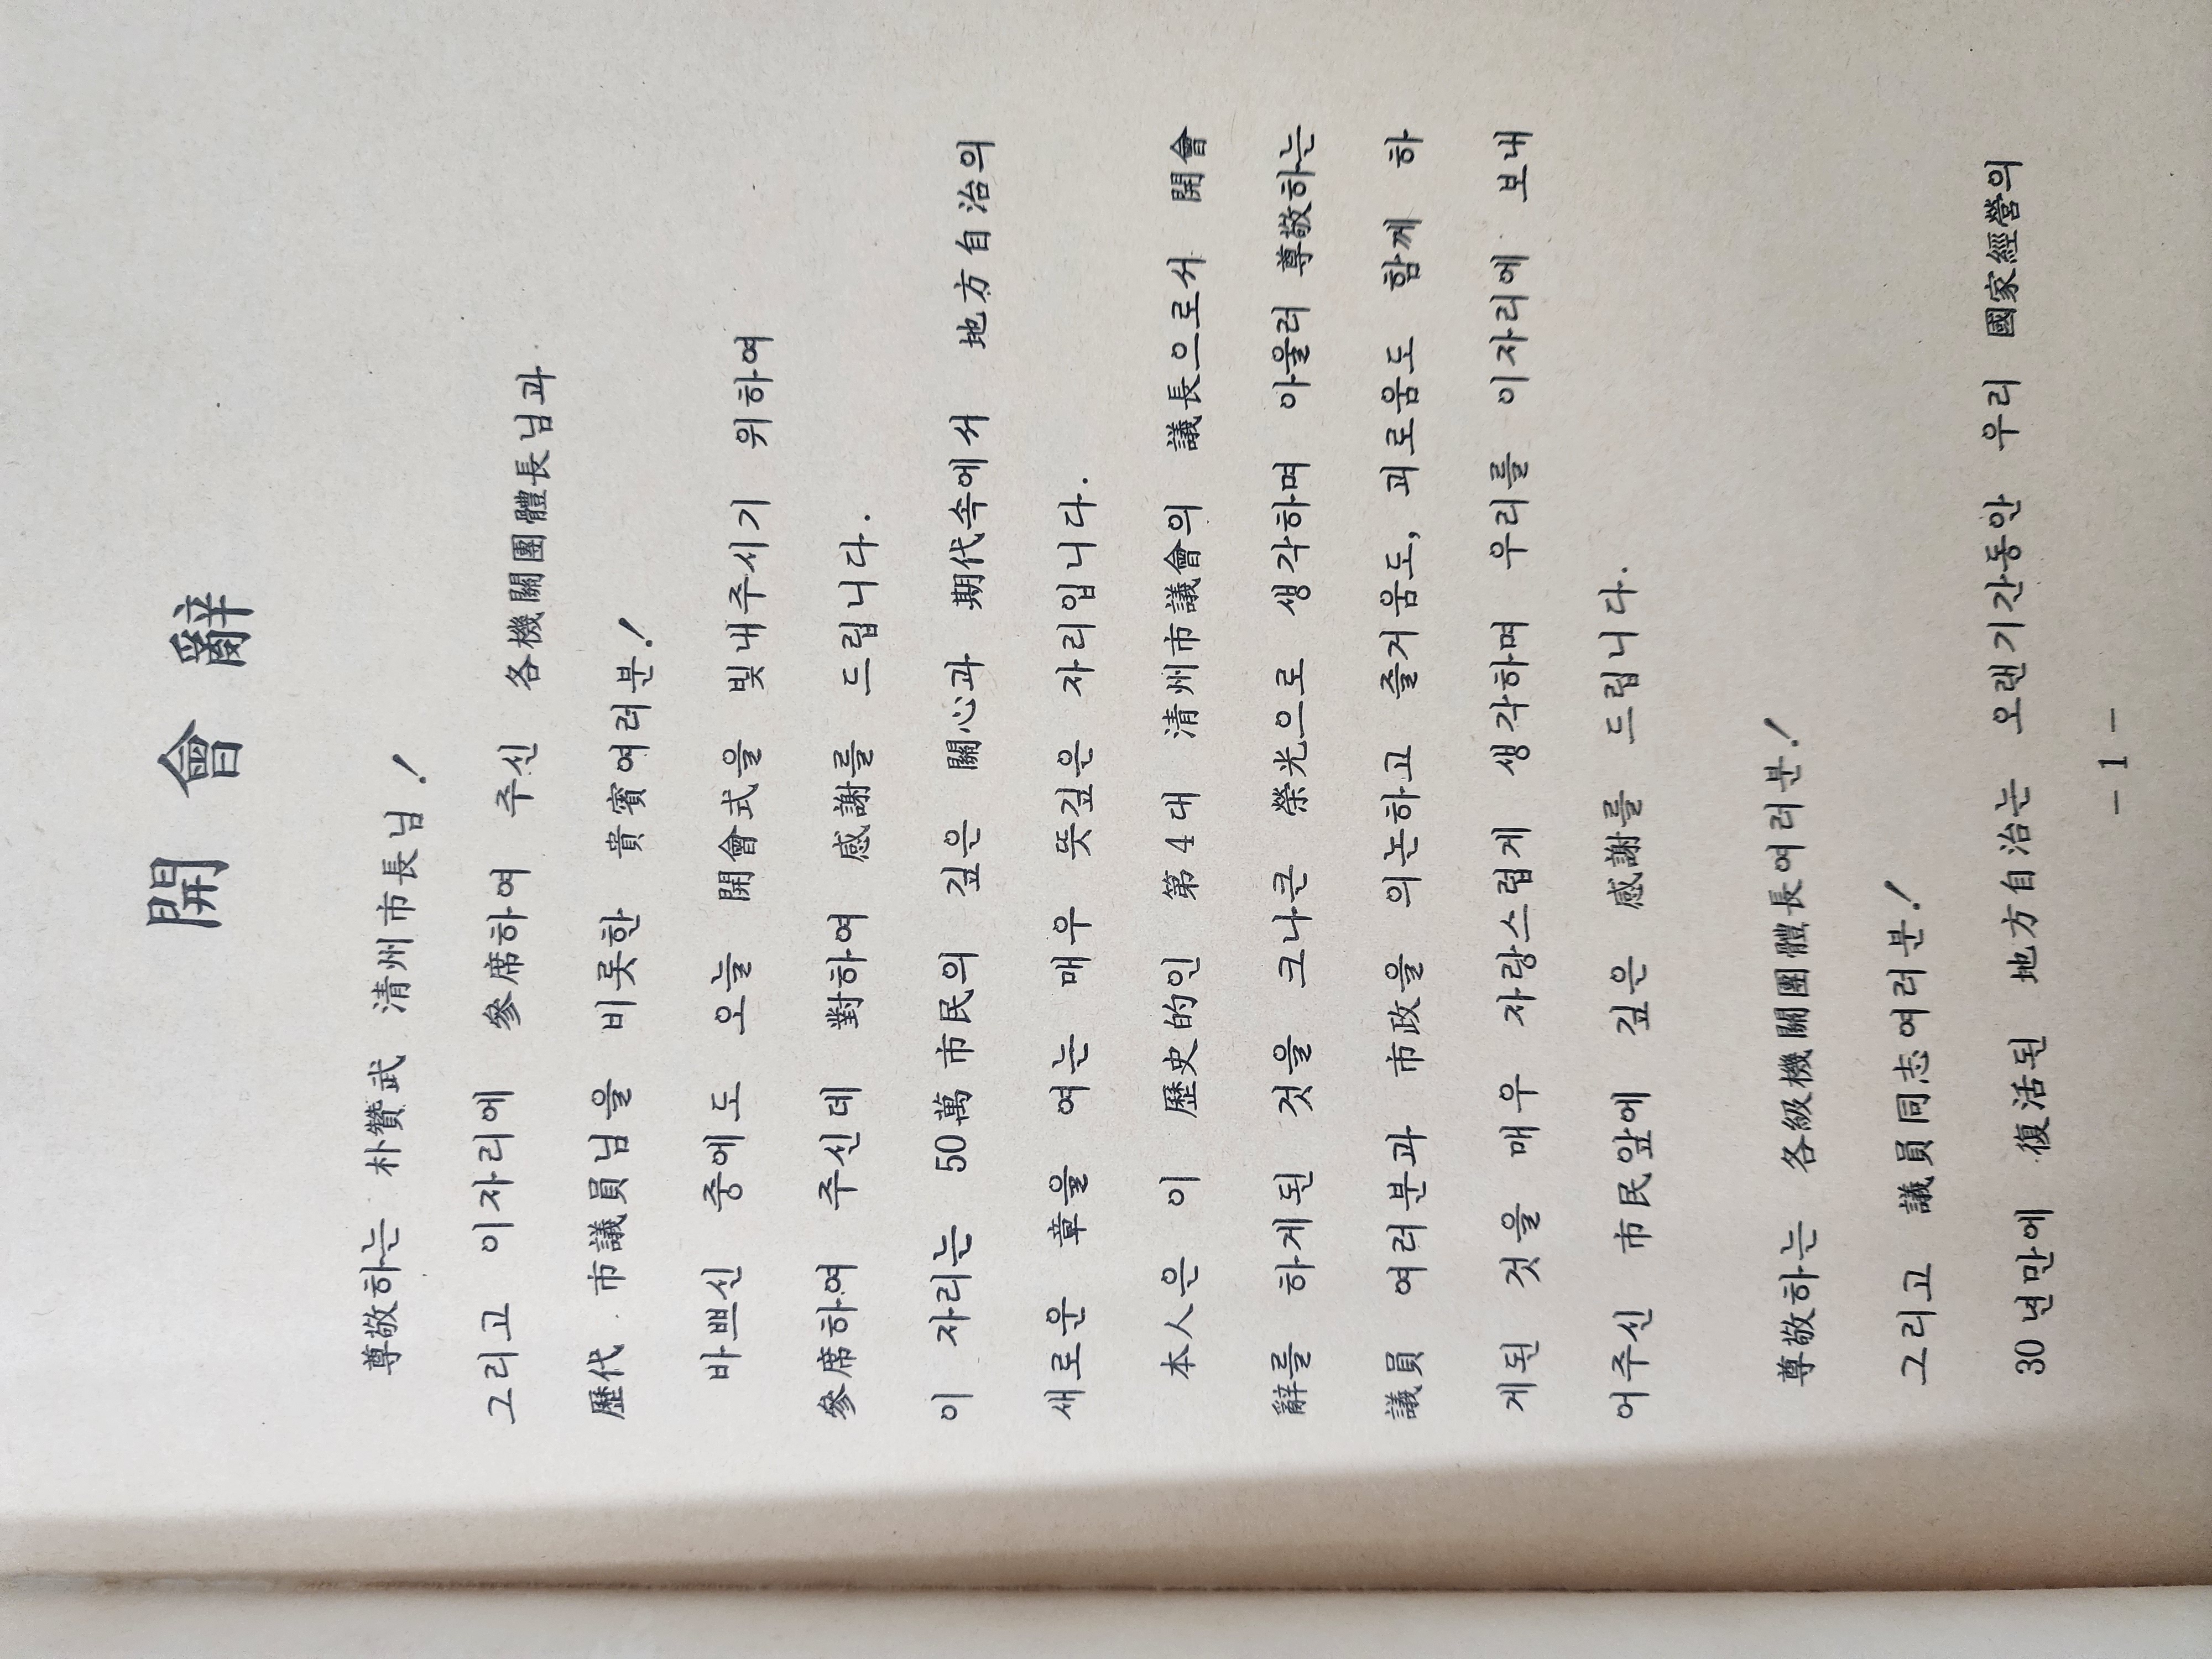 開會辭
尊敬하는 朴贊武 淸州市長님!
그리고 이자리에 參席하여 주신 各機關團體長님과
歷代 市議員님을 비롯한 貴賓여러분!
바쁘신 중에도 오늘 開會式을 빛내주시기 위하여
參席하여 주신데 對하여 感謝를 드립니다.
이 자리는 50萬市民의 깊은 關心과 期代속에서 地方自治의
새로운 章을 여는 매우 뜻깊은 자리입니다.
本人은 이 歷史的인 第4대 淸州市議會의 議長으로서 開會
辭를 하게된 것을 크나큰 榮光으로 생각하며 아울러 尊敬하는
議員 여러분과 市政을 의논하고 즐거움도, 괴로움도 함께 하
게된 것을 매우 자랑스럽게 생각하며 우리를 이자리에 보내
어주신 市民앞에 깊은 感謝를 드립니다.
尊敬하는 各級機關團體長여러분!
그리고 議員同志여러분!
30년만에 復活된 地方自治는 오랜기간동안 우리 國家經營의
- 1 -